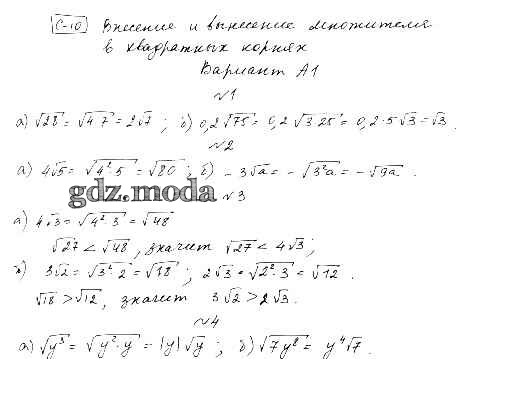 С-10 Внесение и вынесение множителя
в квадратных корнях
Вариант А1
№1
а) √28 = √4·7 = 2√7 ; б) 0,2√75 = 0,2√3·25 = 0,2·5√3 = √3 .
№2
а) 4√5 = √4²·5 = √80 ; б) -3√a = -√3²a = -√9a .
gdz.moda
№3
а) 4√3 = √4²·3 = √48
√27 < √48 , значит √27 < 4√3 ;
б) 3√2 = √3²·2 = √18 ; 2√3 = √2²·3 = √12 .
√18 > √12 , значит 3√2 > 2√3 .
№4
а) √y³ = √y²·y = |y|√y ; б) √7y⁸ = y⁴√7 .